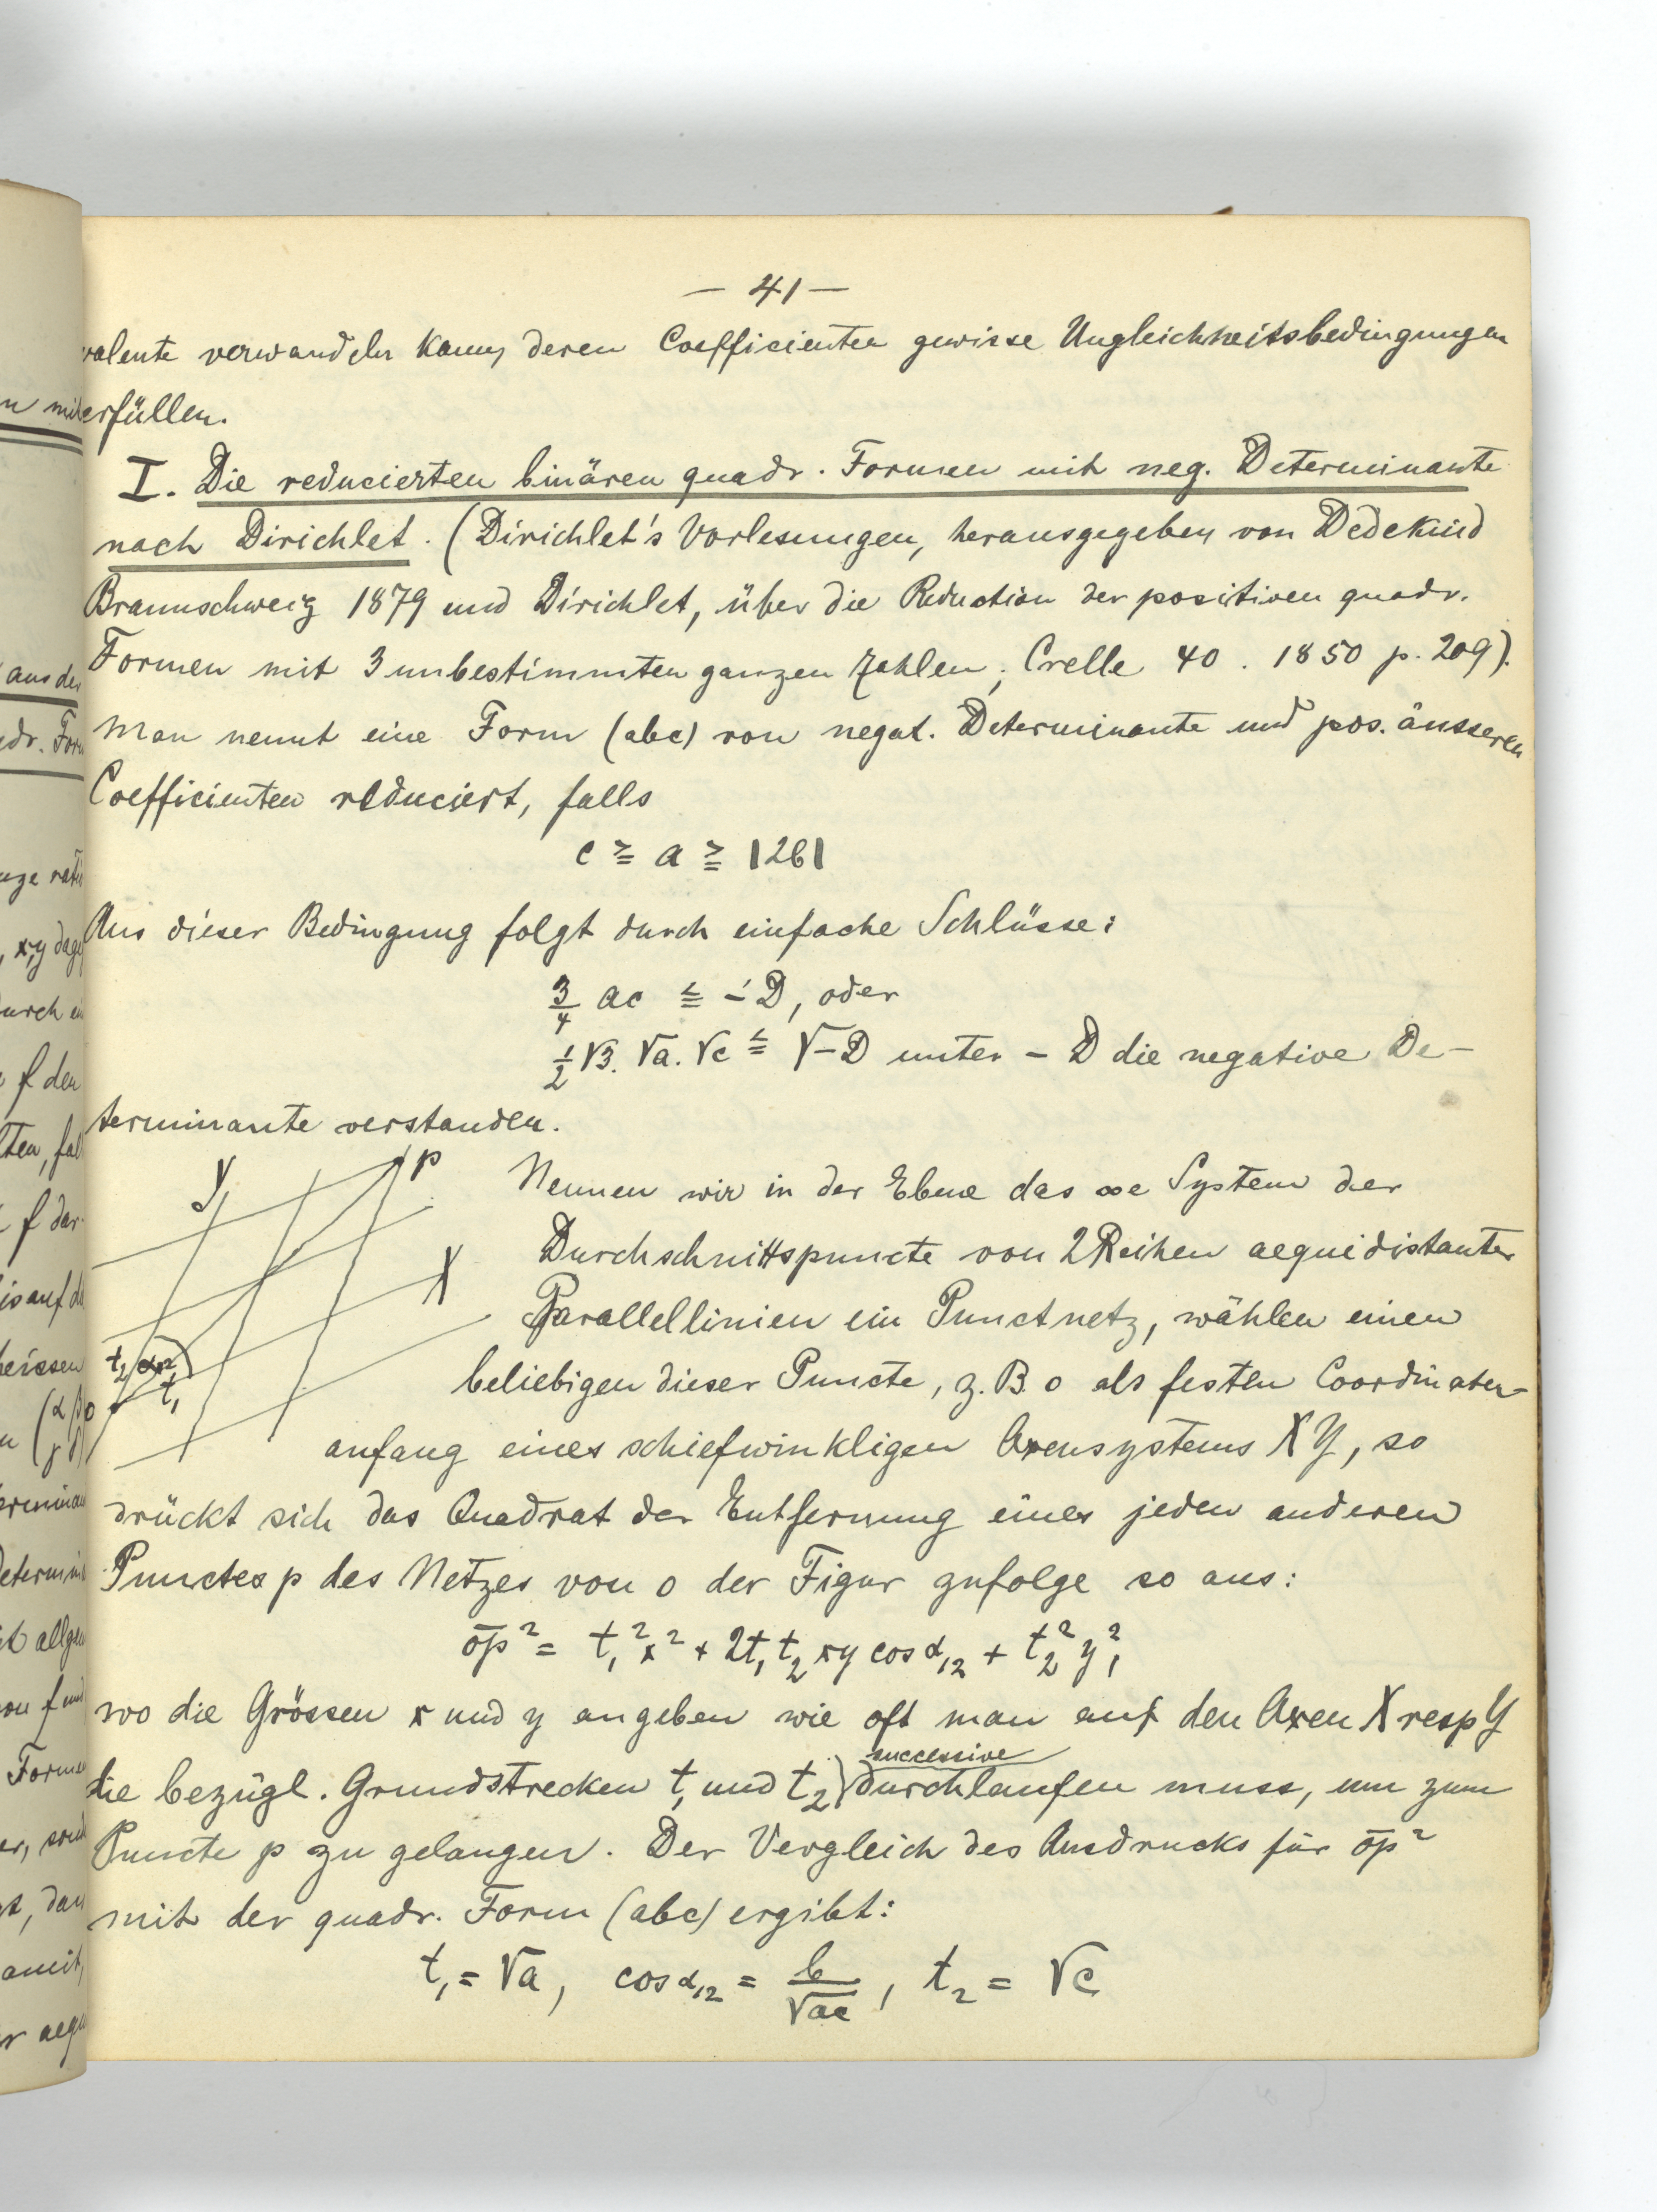 — 41 —
valente verwandeln kann, deren Coefficienten gewisse Ungleichheitsbedingungen
erfüllen.
I. Die reducierten binären quadr. Formen mit neg. Determinante
nach Dirichlet. (Dirichlet's Vorlesungen, herausgegeben von Dedekind
Braunschweig 1879 und Dirichlet, über die Reduction der positiven quadr.
Formen mit 3 unbestimmten ganzen Zahlen; Crelle 40. 1850 p. 209).
Man nennt eine Form (abc) von negat. Determinante und pos. äusseren
Coefficienten reduciert, falls
c ≧ a ≧ |2b|
Aus dieser Bedingung folgt durch einfache Schlüsse:
3/4 ac ≦ -D, oder
1/2 √3. √a. √c ≦ √-D unter - D die negative De-
terminante verstanden.
Y
p
X
t₂ α₁₂
t₁
o
Nennen wir in der Ebene das ∞e System der
Durchschnittspuncte von 2 Reihen aequidistanter
Parallellinien ein Punctnetz, wählen einen
beliebigen dieser Puncte, z. B. o als festen Coordinaten-
anfang eines schiefwinkligen Axensystems XY, so
drückt sich das Quadrat der Entfernung eines jeden anderen
Punctes p des Netzes von o der Figur zufolge so aus:
op² = t₁²x² + 2t₁t₂ xy cos α₁₂ + t₂² y²,
wo die Grössen x und y angeben wie oft man auf den Axen X resp Y
successive
die bezügl. Grundstrecken t₁ und t₂ durchlaufen muss, um zum
Puncte p zu gelangen. Der Vergleich des Ausdrucks für op²
mit der quadr. Form (abc) ergibt:
t₁ = √a, cos α₁₂ = b/√ac, t₂ = √c